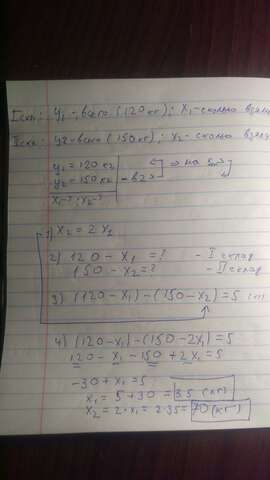 I скл: y1 - всего (120 кг); X1 - сколько взяли
II скл: y2 - всего (150 кг); X2 - сколько взяли
y1 = 120 кг
y2 = 150 кг - в 2 > => на 5 >
X1 - ? X2 - ?
1) X2 = 2 X1
2) 120 - X1 = ? - I склад
150 - X2 = ? - II склад
3) (120 - X1) - (150 - X2) = 5
4) (120 - X1) - (150 - 2X1) = 5
120 - X1 - 150 + 2X1 = 5
-30 + X1 = 5
X1 = 5 + 30 = 35 (кг)
X2 = 2 · X1 = 2 · 35 = 70 (кг)